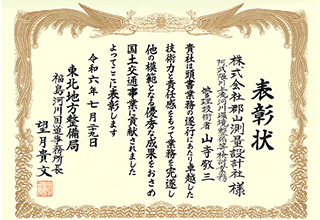 表彰状
株式会社郡山測量設計社 様
阿武隈川上流河川環境整備等検討業務
管理技術者 山寺敬三
貴社は頭書業務の遂行にあたり卓越した
技術力と責任感をもって業務を完遂し
他の模範となる優秀な成果をおさめ
国土交通事業に貢献されました
よってここに表彰します
令和六年七月二十九日
東北地方整備局
福島河川国道事務所長
望月貴文